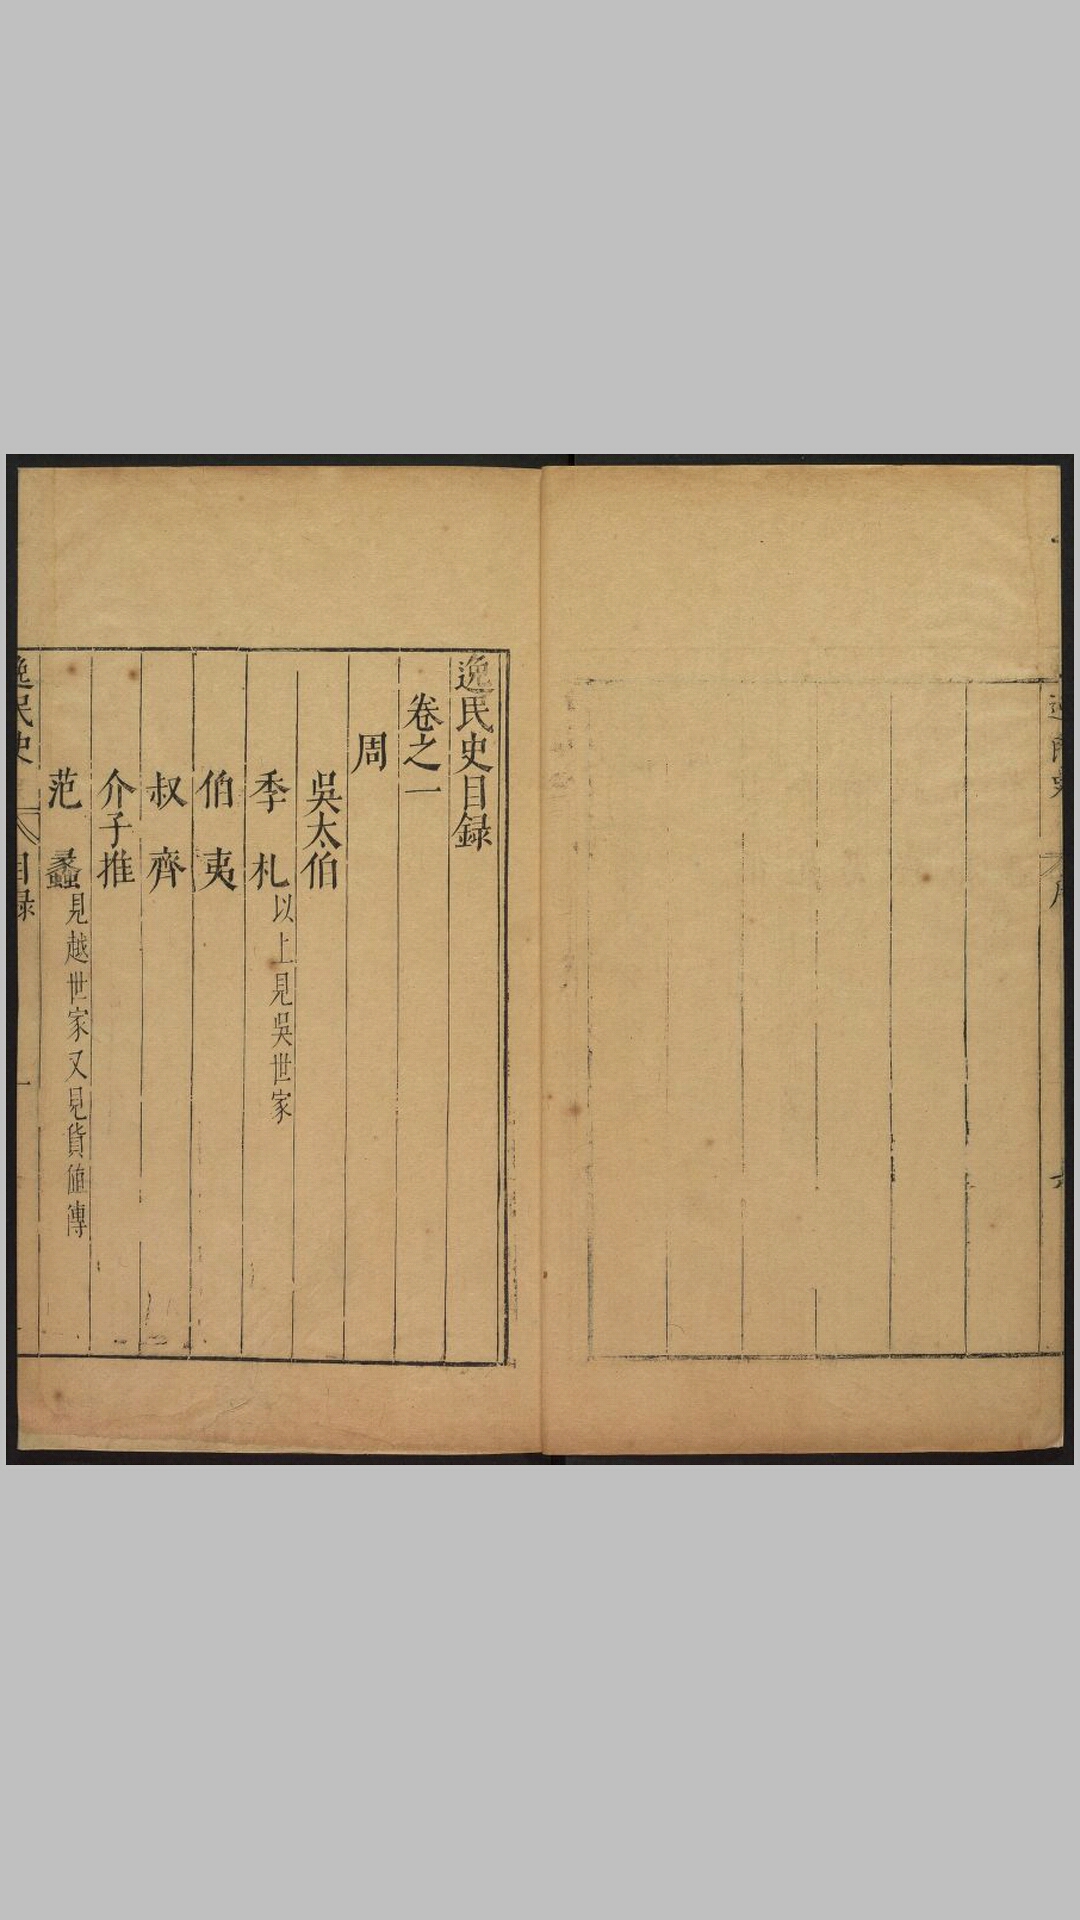 逸民史目録
卷之一
周
吳太伯
季札以上見吳世家
伯夷
叔齊
介子推
范蠡見越世家又見貨殖傳
逸民史
目録
一